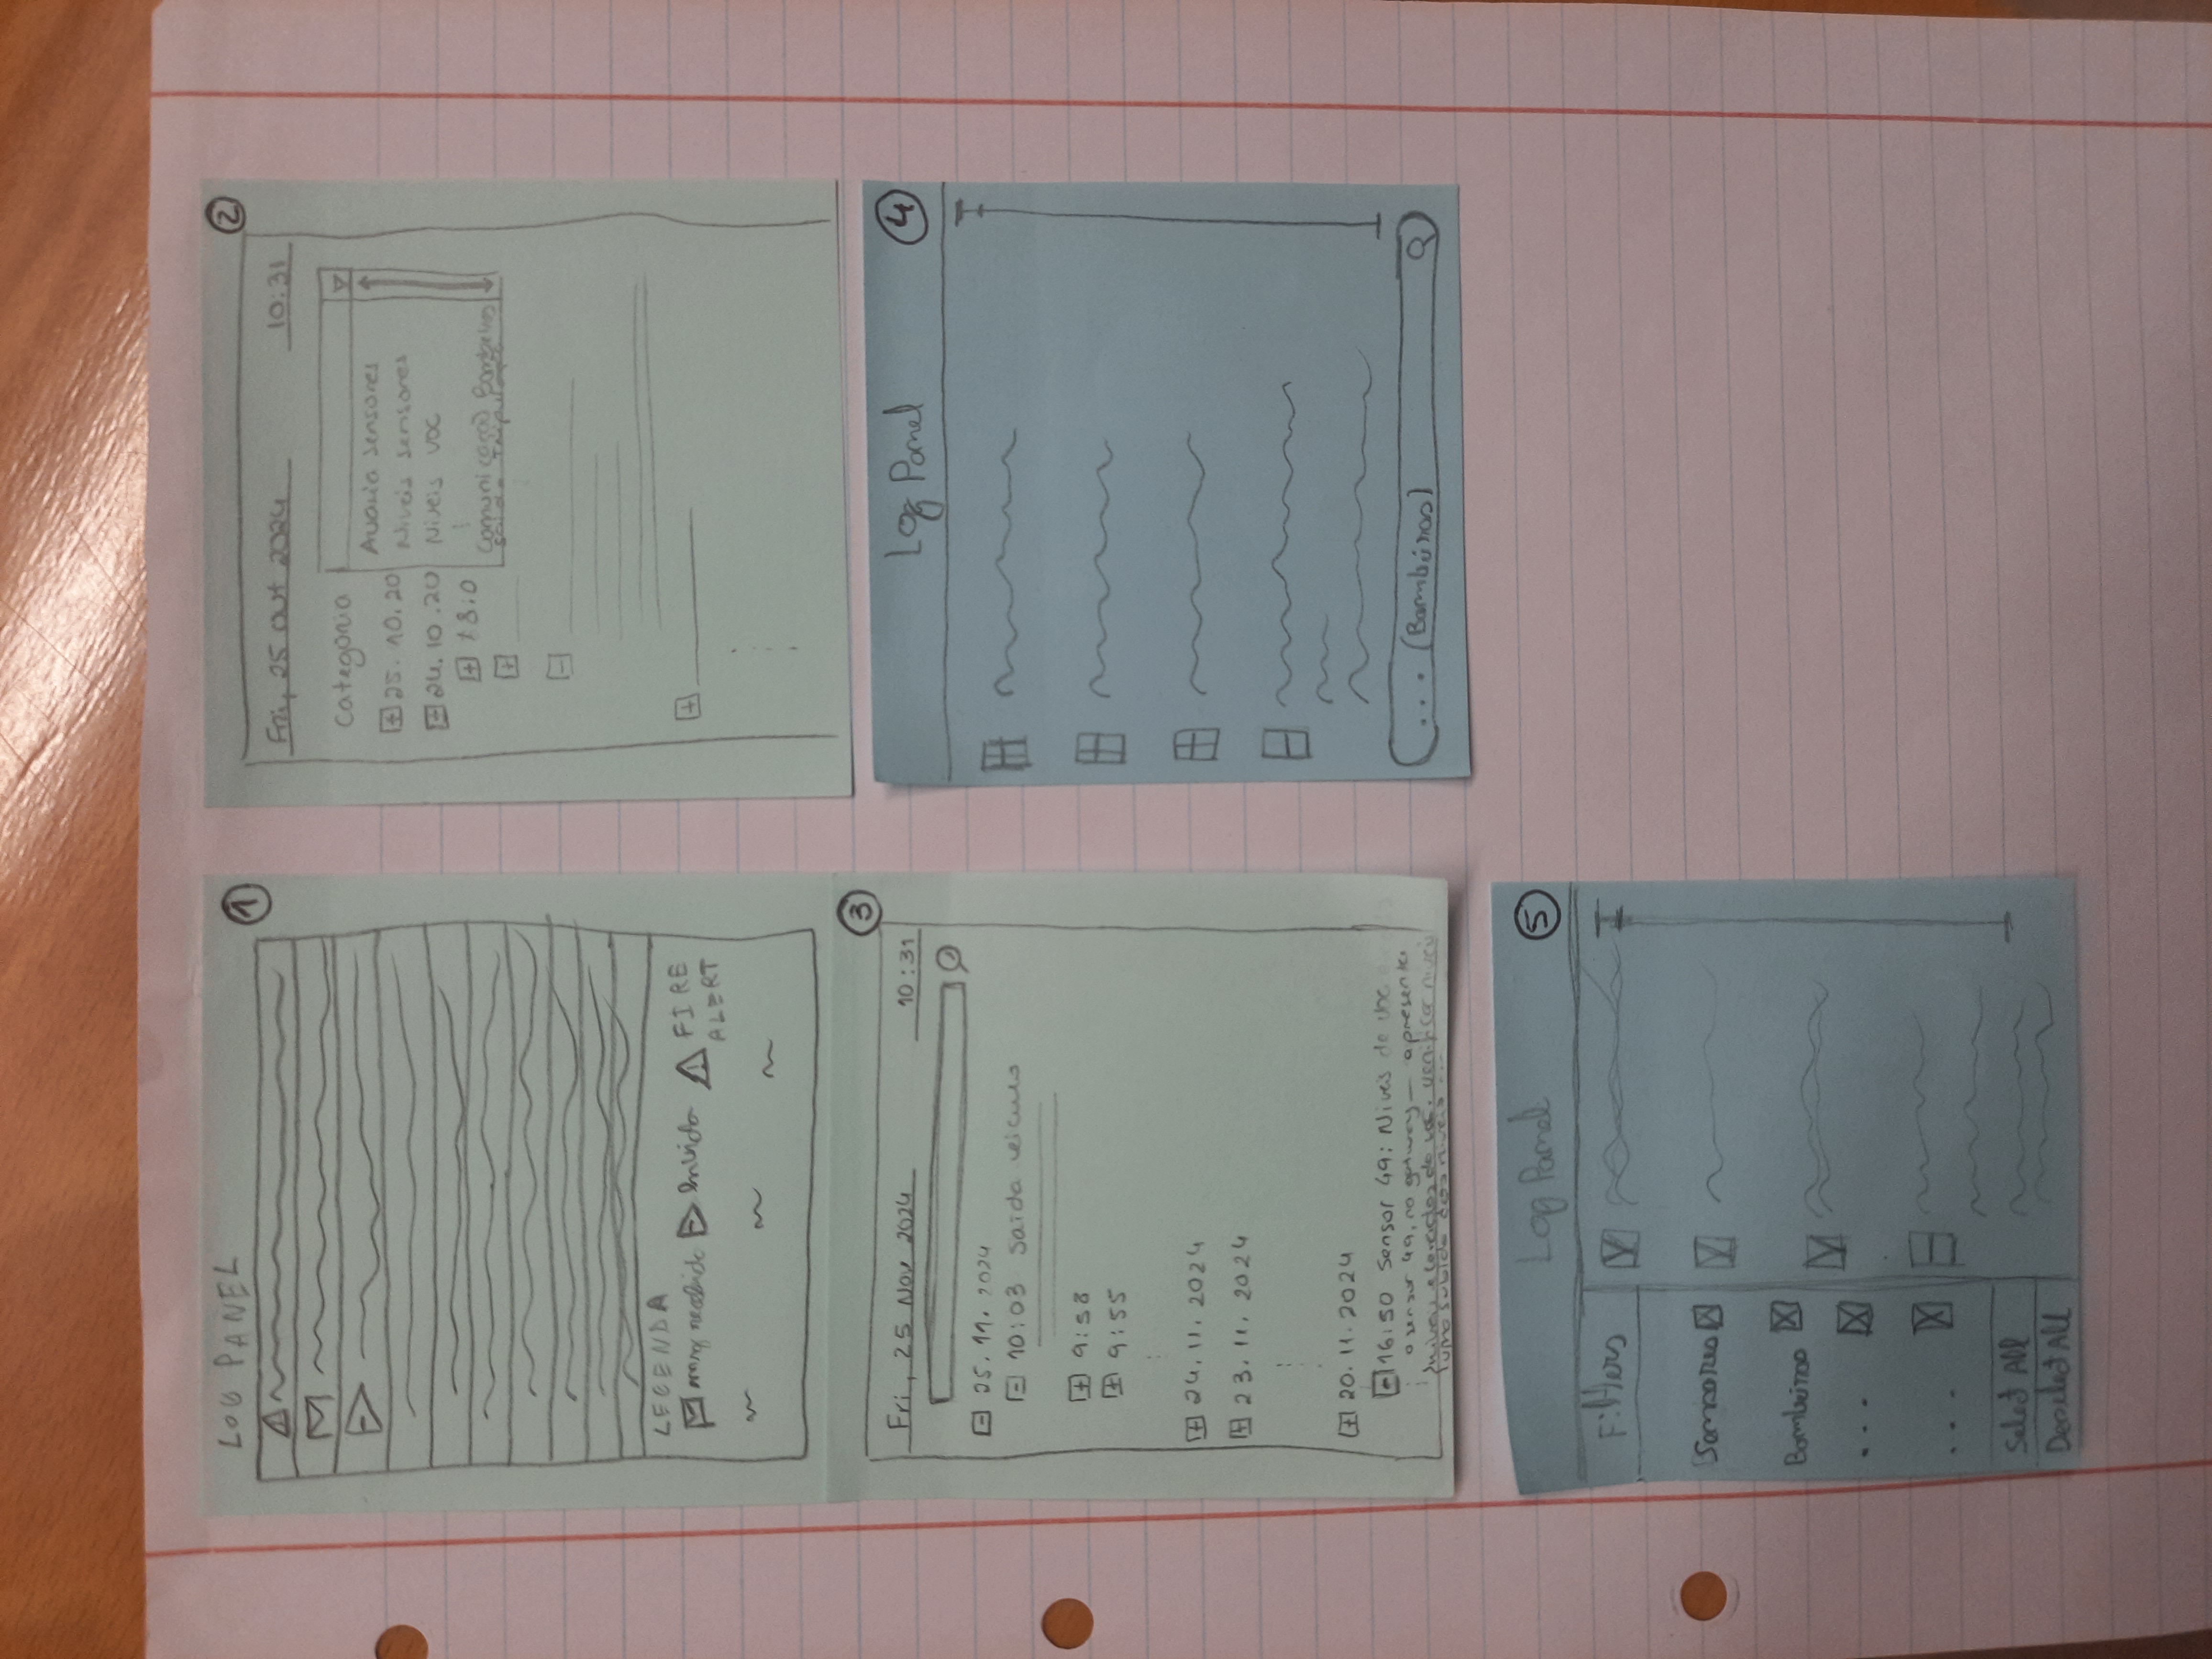 LOG PANEL
1
LEGENDA
msg recebida
Envida
FIRE
ALERT
2
Fri, 25 out 2024
10:31
Categoria
Avaria sensores
Niveis sensores
Niveis voc
Comunicação Bombeiros
Saida Tripulação
25.10.20
24.10.20
18:0
3
Fri, 25 Nov 2024
10:31
25.11.2024
10:03 Saida veiculo
9:58
9:55
24.11.2024
23.11.2024
20.11.2024
16:50 Sensor 49: Niveis de voc
o sensor 49, no gateway — apresenta
niveis elevados de voc. verificar niveis
uma subida dos niveis ...
4
Log Panel
... (Bombeiros)
5
Log Panel
Filters
Sensores
Bombeiros
...
....
Select All
Deselect All